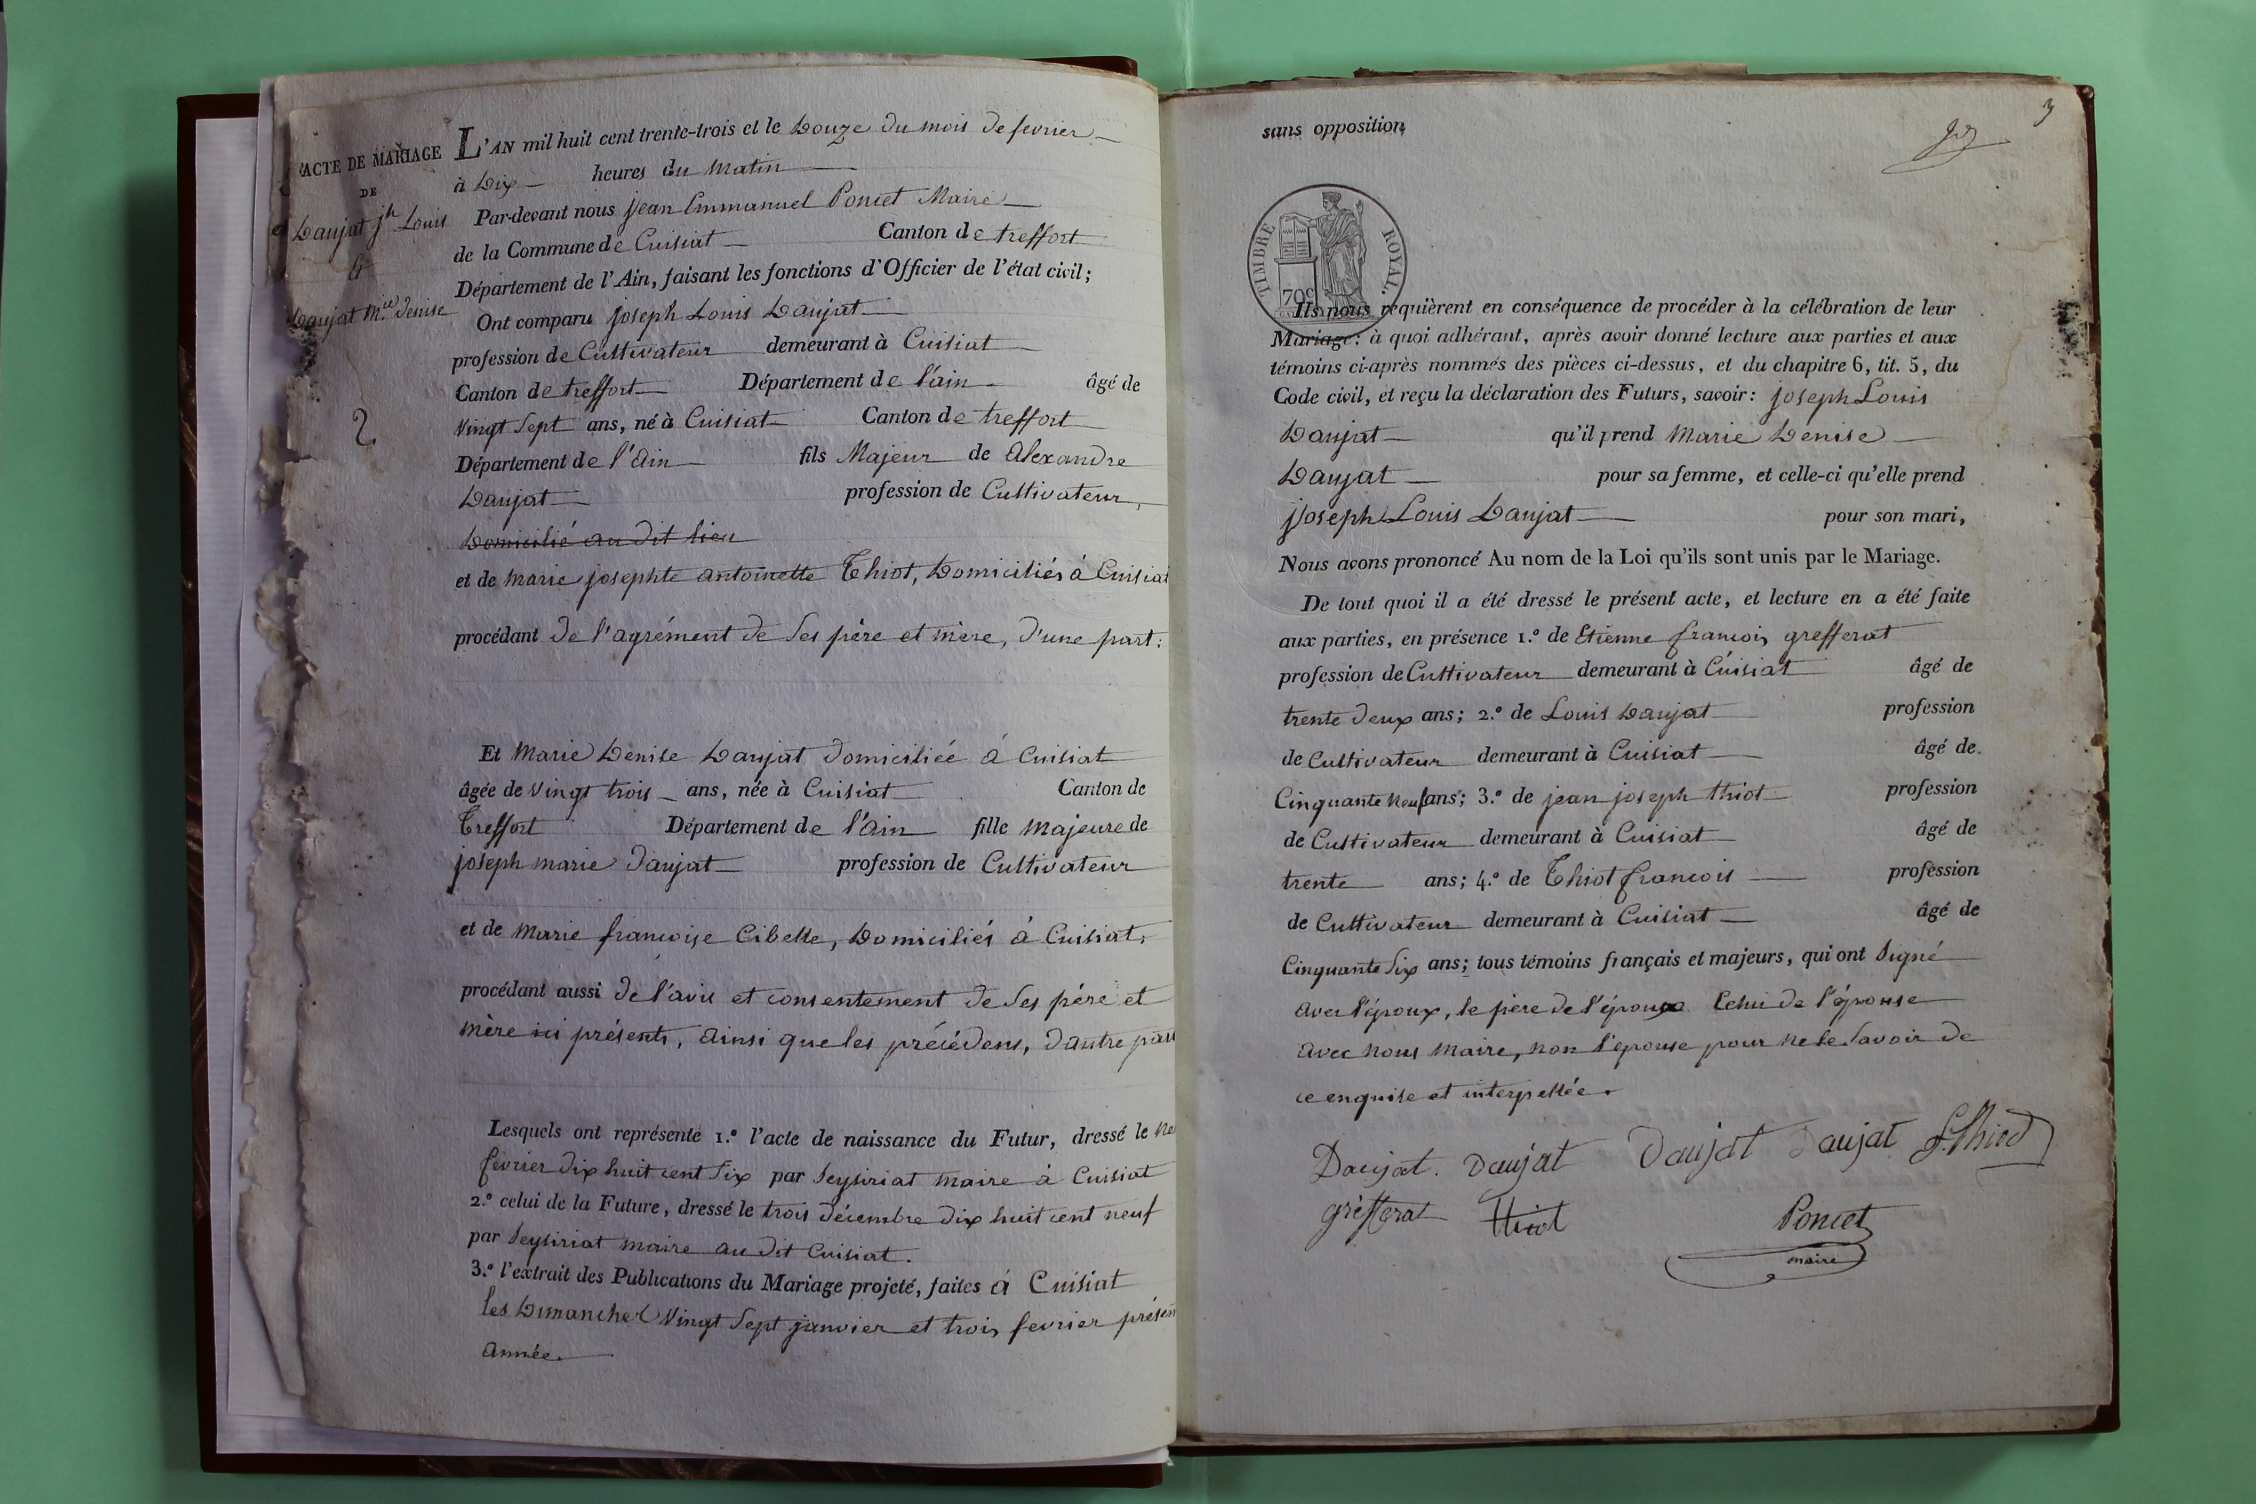 ACTE DE MARIAGE
DE
Daujat jh Louis
&
Daujat Mie Denise
2
L'AN mil huit cent trente-trois et le Douze du mois de fevrier
à Dix heures du Matin
Par-devant nous jean Emmanuel Poncet Maire
de la Commune de Cuisiat Canton de treffort
Département de l'Ain, faisant les fonctions d'Officier de l'état civil;
Ont comparu joseph Louis Daujat
profession de Cultivateur demeurant à Cuisiat
Canton de treffort Département de l'ain âgé de
Vingt Sept ans, né à Cuisiat Canton de treffort
Département de l'Ain fils Majeur de Alexandre
Daujat profession de Cultivateur,
Domicilié au dit lieu
et de marie josephte antoinette Thiot, Domiciliés à Cuisiat
procédant de l'agrément de Ses père et mère, d'une part:
Et Marie Denise Daujat domiciliée à Cuisiat
âgée de Vingt trois ans, née à Cuisiat Canton de
Treffort Département de l'Ain fille majeure de
joseph marie Daujat profession de Cultivateur
et de Marie francoise Cibelle, Domiciliés à Cuisiat,
procédant aussi de l'avis et consentement de Ses père et
mère ici présents, ainsi que les précédens, d'autre part
Lesquels ont représenté 1.º l'acte de naissance du Futur, dressé le
fevrier dix huit cent Six par Seysiriat maire à Cuisiat
2.º celui de la Future, dressé le trois décembre dix huit cent neuf
par Seysiriat maire au dit Cuisiat.
3.º l'extrait des Publications du Mariage projeté, faites à Cuisiat
les Dimanches Vingt Sept janvier et trois fevrier présente
année.
3
sans opposition
TIMBRE ROYAL
70c
Ils nous requièrent en conséquence de procéder à la célébration de leur
Mariage: à quoi adhérant, après avoir donné lecture aux parties et aux
témoins ci-après nommés des pièces ci-dessus, et du chapitre 6, tit. 5, du
Code civil, et reçu la déclaration des Futurs, savoir: joseph Louis
Daujat qu'il prend Marie Denise
Daujat pour sa femme, et celle-ci qu'elle prend
joseph Louis Daujat pour son mari,
Nous avons prononcé Au nom de la Loi qu'ils sont unis par le Mariage.
De tout quoi il a été dressé le présent acte, et lecture en a été faite
aux parties, en présence 1.º de Etienne francois grefferat
profession de Cultivateur demeurant à Cuisiat âgé de
trente deux ans; 2.º de Louis Daujat profession
de Cultivateur demeurant à Cuisiat âgé de
Cinquante Neuf ans; 3.º de jean joseph thiot profession
de Cultivateur demeurant à Cuisiat âgé de
trente ans; 4.º de Thiot francois profession
de Cultivateur demeurant à Cuisiat âgé de
Cinquante Six ans; tous témoins français et majeurs, qui ont Signé
avec l'époux, le père de l'époux Celui de l'épouse
avec nous maire, non l'épouse pour ne le Savoir de
ce enquise et interpellée.
Daujat. Daujat Daujat Daujat f. Thiod
grefferat Thiot Poncet
maire